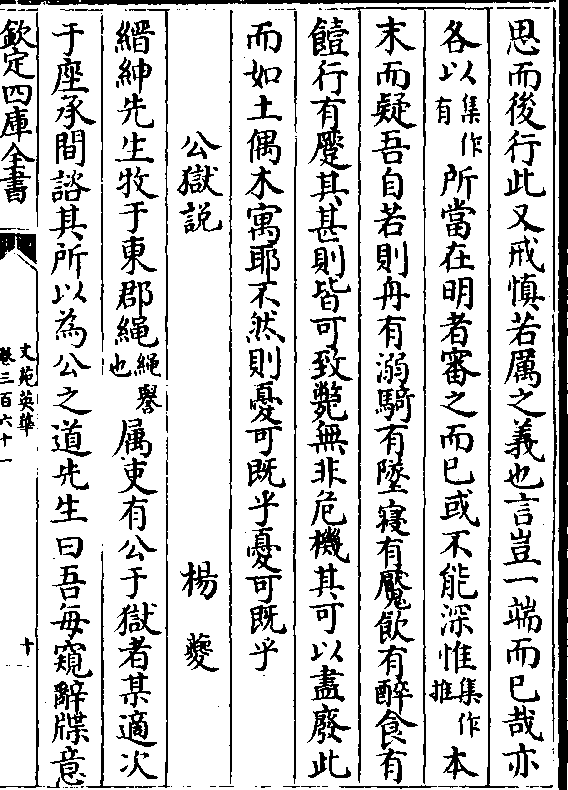 思而後行此又戒慎若厲之義也言豈一端而已哉亦
各以集作有所當在明者審之而已或不能深惟集作推本
末而疑吾自若則舟有溺騎有墜寢有魘飲有醉食有
饐行有蹷其甚則皆可致斃無非危機其可以盡廢此
而如土偶木寓耶不然則憂可既乎憂可既乎
公獄説 楊夔
縉紳先生牧于東郡繩繩譽也属吏有公于獄者某適次
于座承間諮其所以為公之道先生曰吾每窺辭牒意
欽定四庫全書 文苑英華 卷三百六十一 十